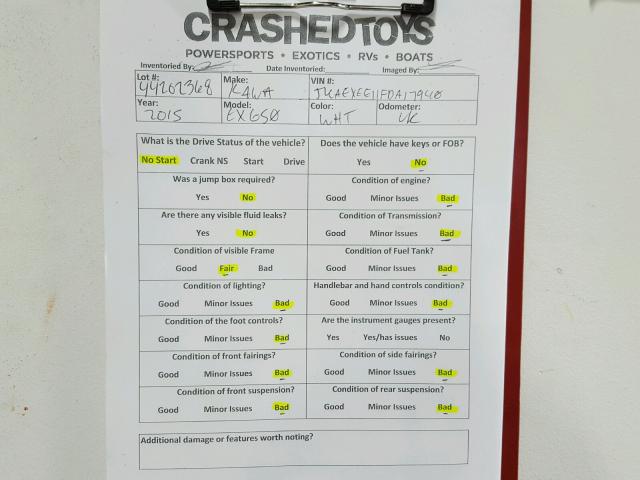 CRASHEDTOYS
POWERSPORTS • EXOTICS • RVs • BOATS
Inventoried By: Date Inventoried: Imaged By:
Lot #: Make: VIN #:
44202368 KAWA JKAEXEE11FDA17940
Year: Model: Color: Odometer:
2015 EX650 WHT UK
What is the Drive Status of the vehicle? Does the vehicle have keys or FOB?
No Start Crank NS Start Drive Yes No
Was a jump box required? Condition of engine?
Yes No Good Minor Issues Bad
Are there any visible fluid leaks? Condition of Transmission?
Yes No Good Minor Issues Bad
Condition of visible Frame Condition of Fuel Tank?
Good Fair Bad Good Minor Issues Bad
Condition of lighting? Handlebar and hand controls condition?
Good Minor Issues Bad Good Minor Issues Bad
Condition of the foot controls? Are the instrument gauges present?
Good Minor Issues Bad Yes Yes/has issues No
Condition of front fairings? Condition of side fairings?
Good Minor Issues Bad Good Minor Issues Bad
Condition of front suspension? Condition of rear suspension?
Good Minor Issues Bad Good Minor Issues Bad
Additional damage or features worth noting?